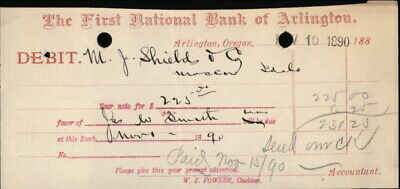 The First National Bank of Arlington.
Arlington, Oregon, NOV 10 1890 188
DEBIT. M. J. Shield & Co
Moscow Idaho
Your note for $ 225.00 225 00
favor of Jas W Smith will be due 6 25
at this Bank, Nov 1 1890 231 25
No. Send
Paid Nov 15/90
Please give this your prompt attention. Accountant.
W. E. FOWLER, Cashier.